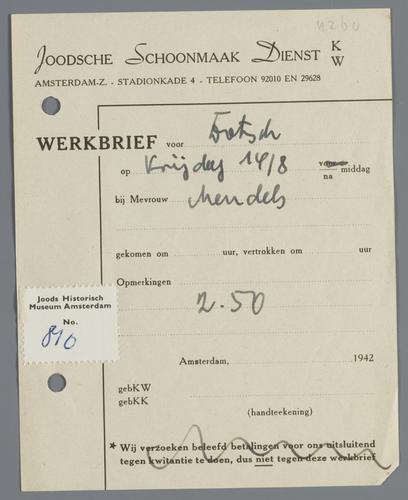 4260
JOODSCHE SCHOONMAAK DIENST K W
AMSTERDAM-Z. - STADIONKADE 4 - TELEFOON 92010 EN 29628
WERKBRIEF voor
op Vrijdag 14/8 voor na middag
bij Mevrouw Mendels
gekomen om uur, vertrokken om uur
Opmerkingen
2.50
Joods Historisch
Museum Amsterdam
No.
890
Amsterdam, 1942
gebKW
gebKK
(handteekening)
* Wij verzoeken beleefd betalingen voor ons uitsluitend
tegen kwitantie te doen, dus niet tegen deze werkbrief